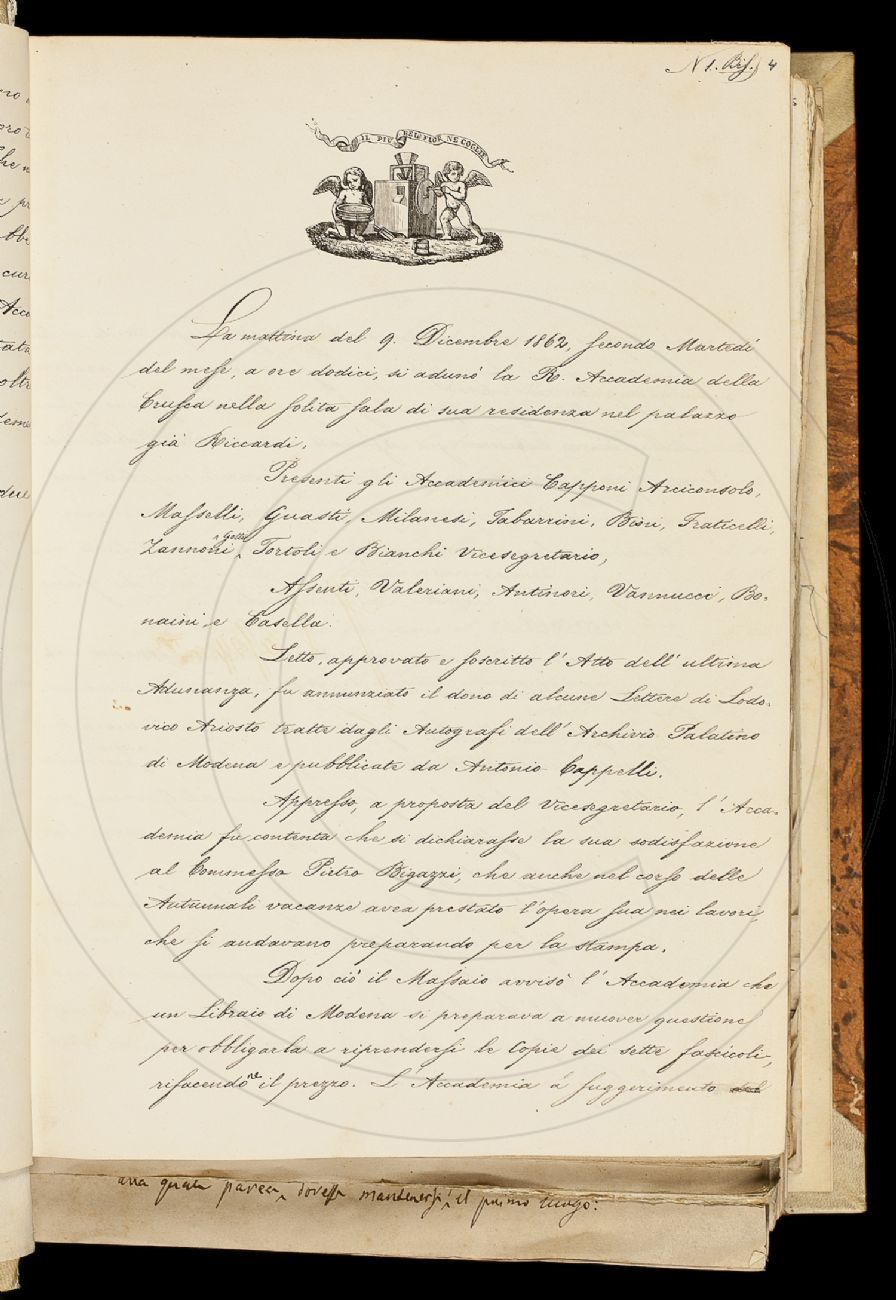 N 1. Bis. 4
IL PIU BEL FIOR NE COGLIE
La mattina del 9. Dicembre 1862, secondo Martedì
del mese, a ore dodici, si adunò la R. Accademia della
Crusca nella solita sala di sua residenza nel palazzo
già Riccardi.
Presenti gli Accademici Capponi Arciconsolo,
Masselli, Guasti, Milanesi, Tabarrini, Bini, Fraticelli,
Zannoni, Gelli, Tortoli e Bianchi Vicesegretario,
Assenti, Valeriani, Antinori, Vannucci, Bo-
naini, e Casella.
Letto, approvato e soscritto l'Atto dell'ultima
Adunanza, fu annunziato il dono di alcune Lettere di Lodo-
vico Ariosto tratte dagli Autografi dell'Archivio Palatino
di Modena e pubblicate da Antonio Cappelli.
Appresso, a proposta del Vicesegretario, l'Acca-
demia fu contenta che si dichiarasse la sua sodisfazione
al Commesso Pietro Bigazzi, che anche nel corso delle
Autunnali vacanze avea prestato l'opera sua nei lavori,
che si andavano preparando per la stampa.
Dopo ciò il Massaio avvisò l'Accademia che
un Libraio di Modena si preparava a muover questione
per obbligarla a riprendersi le Copie dei sette fascicoli,
rifacendone il prezzo. L'Accademia a suggerimento del
alla quale parea dovesse mantenersi il primo luogo: